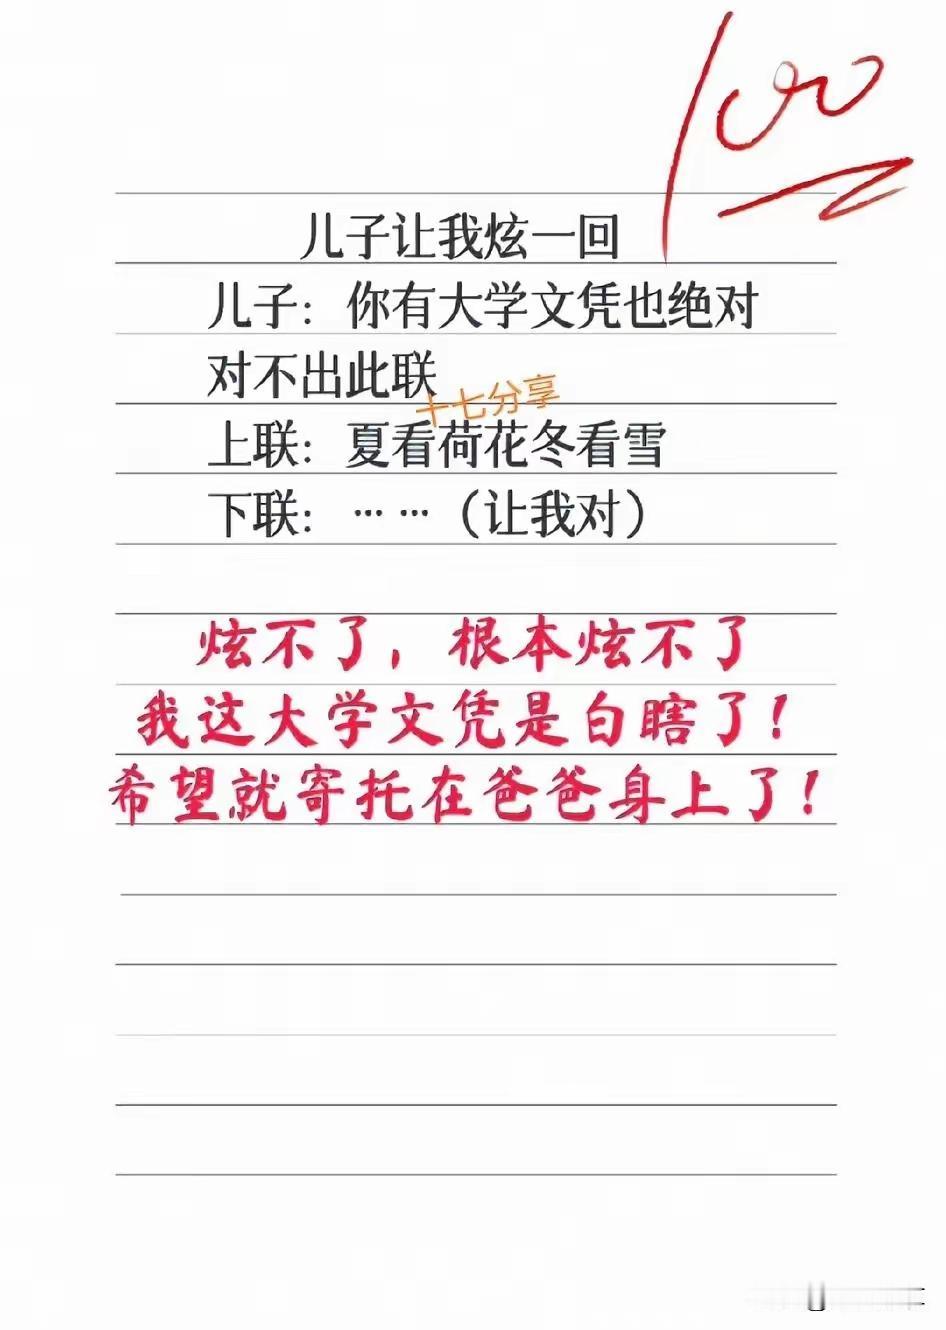 100
儿子让我炫一回
儿子：你有大学文凭也绝对
对不出此联
十七分享
上联：夏看荷花冬看雪
下联：……（让我对）
炫不了，根本炫不了
我这大学文凭是白瞎了！
希望就寄托在爸爸身上了！